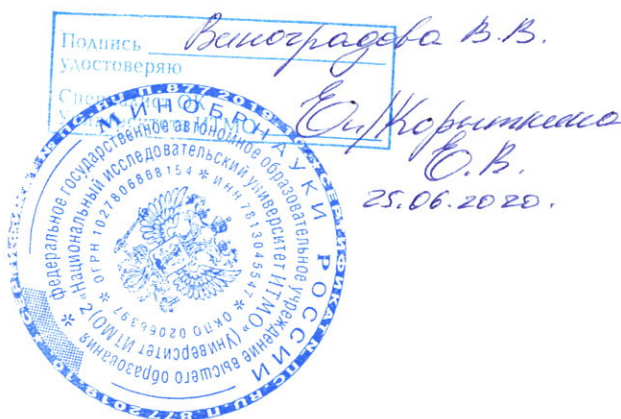 Подпись Виноградова В.В.
удостоверяю
Специалист ОК
Университета ИТМО
Корыткина
Е.В.
25.06.2020.
МИНОБРНАУКИ РОССИИ
федеральное государственное автономное образовательное учреждение высшего образования
«Национальный исследовательский университет ИТМО» (Университет ИТМО) 2
ОГРН 1027806868154 * ИНН 7813045547 * ОКПО 02066397